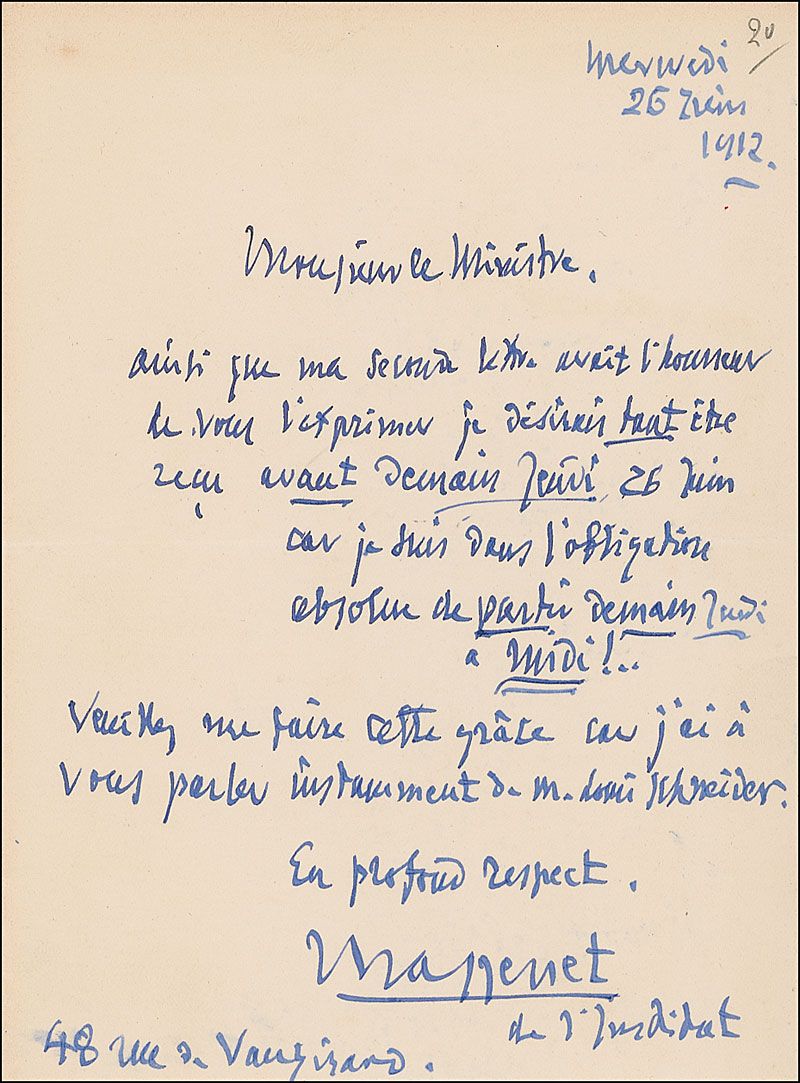 20
Mercredi
26 Juin
1912.
Monsieur le Ministre.
ainsi que ma seconde lettre avait l'honneur
de vous l'exprimer je désirais tant être
reçu avant demain Jeudi 26 Juin
car je suis dans l'obligation
absolue de partir demain Jeudi
à midi !..
Veuillez me faire cette grâce car j'ai à
vous parler instamment de M. Louis Schneider.
En profond respect.
Massenet
de l'Institut
48 rue de Vaugirard.